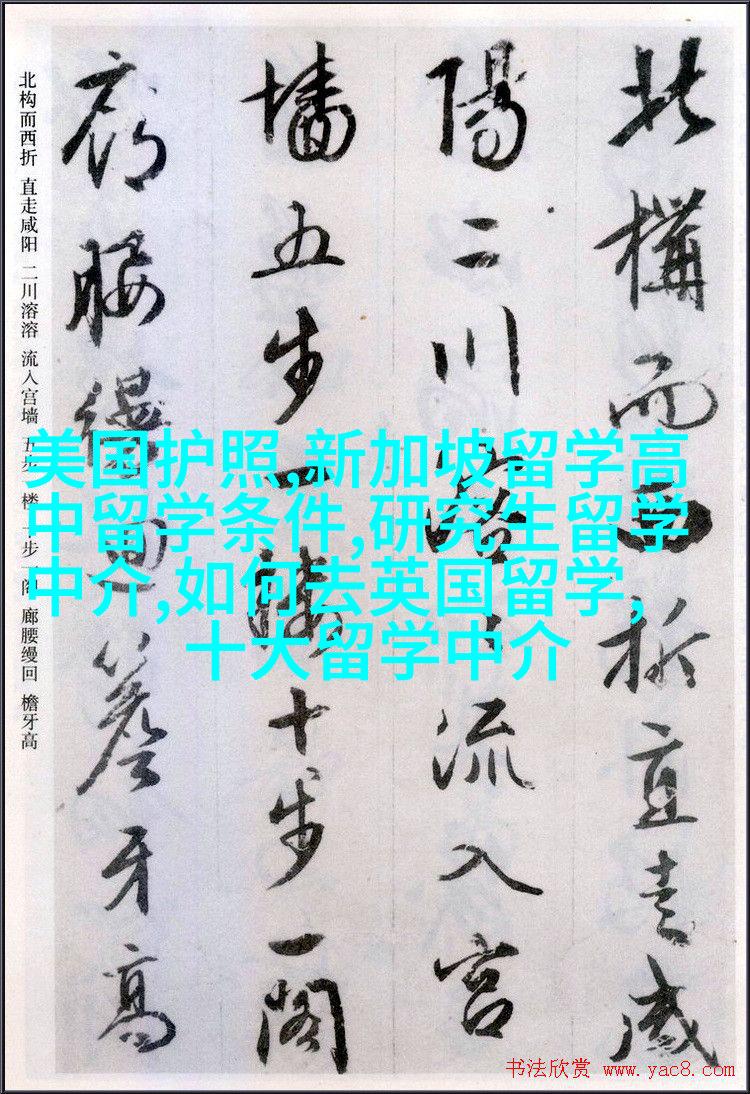 北構而西折直走咸
陽二川溶溶流入宮
墻五步一樓十步一閣
廊腰縵迴簷牙高
北构而西折 直走咸阳 二川溶溶 流入宫墙 五步一楼 十步一阁 廊腰缦回 檐牙高
美国护照,新加坡留学高
中留学条件,研究生留学
中介,如何去英国留学,
十大留学中介
书法欣赏 www.yac8.com